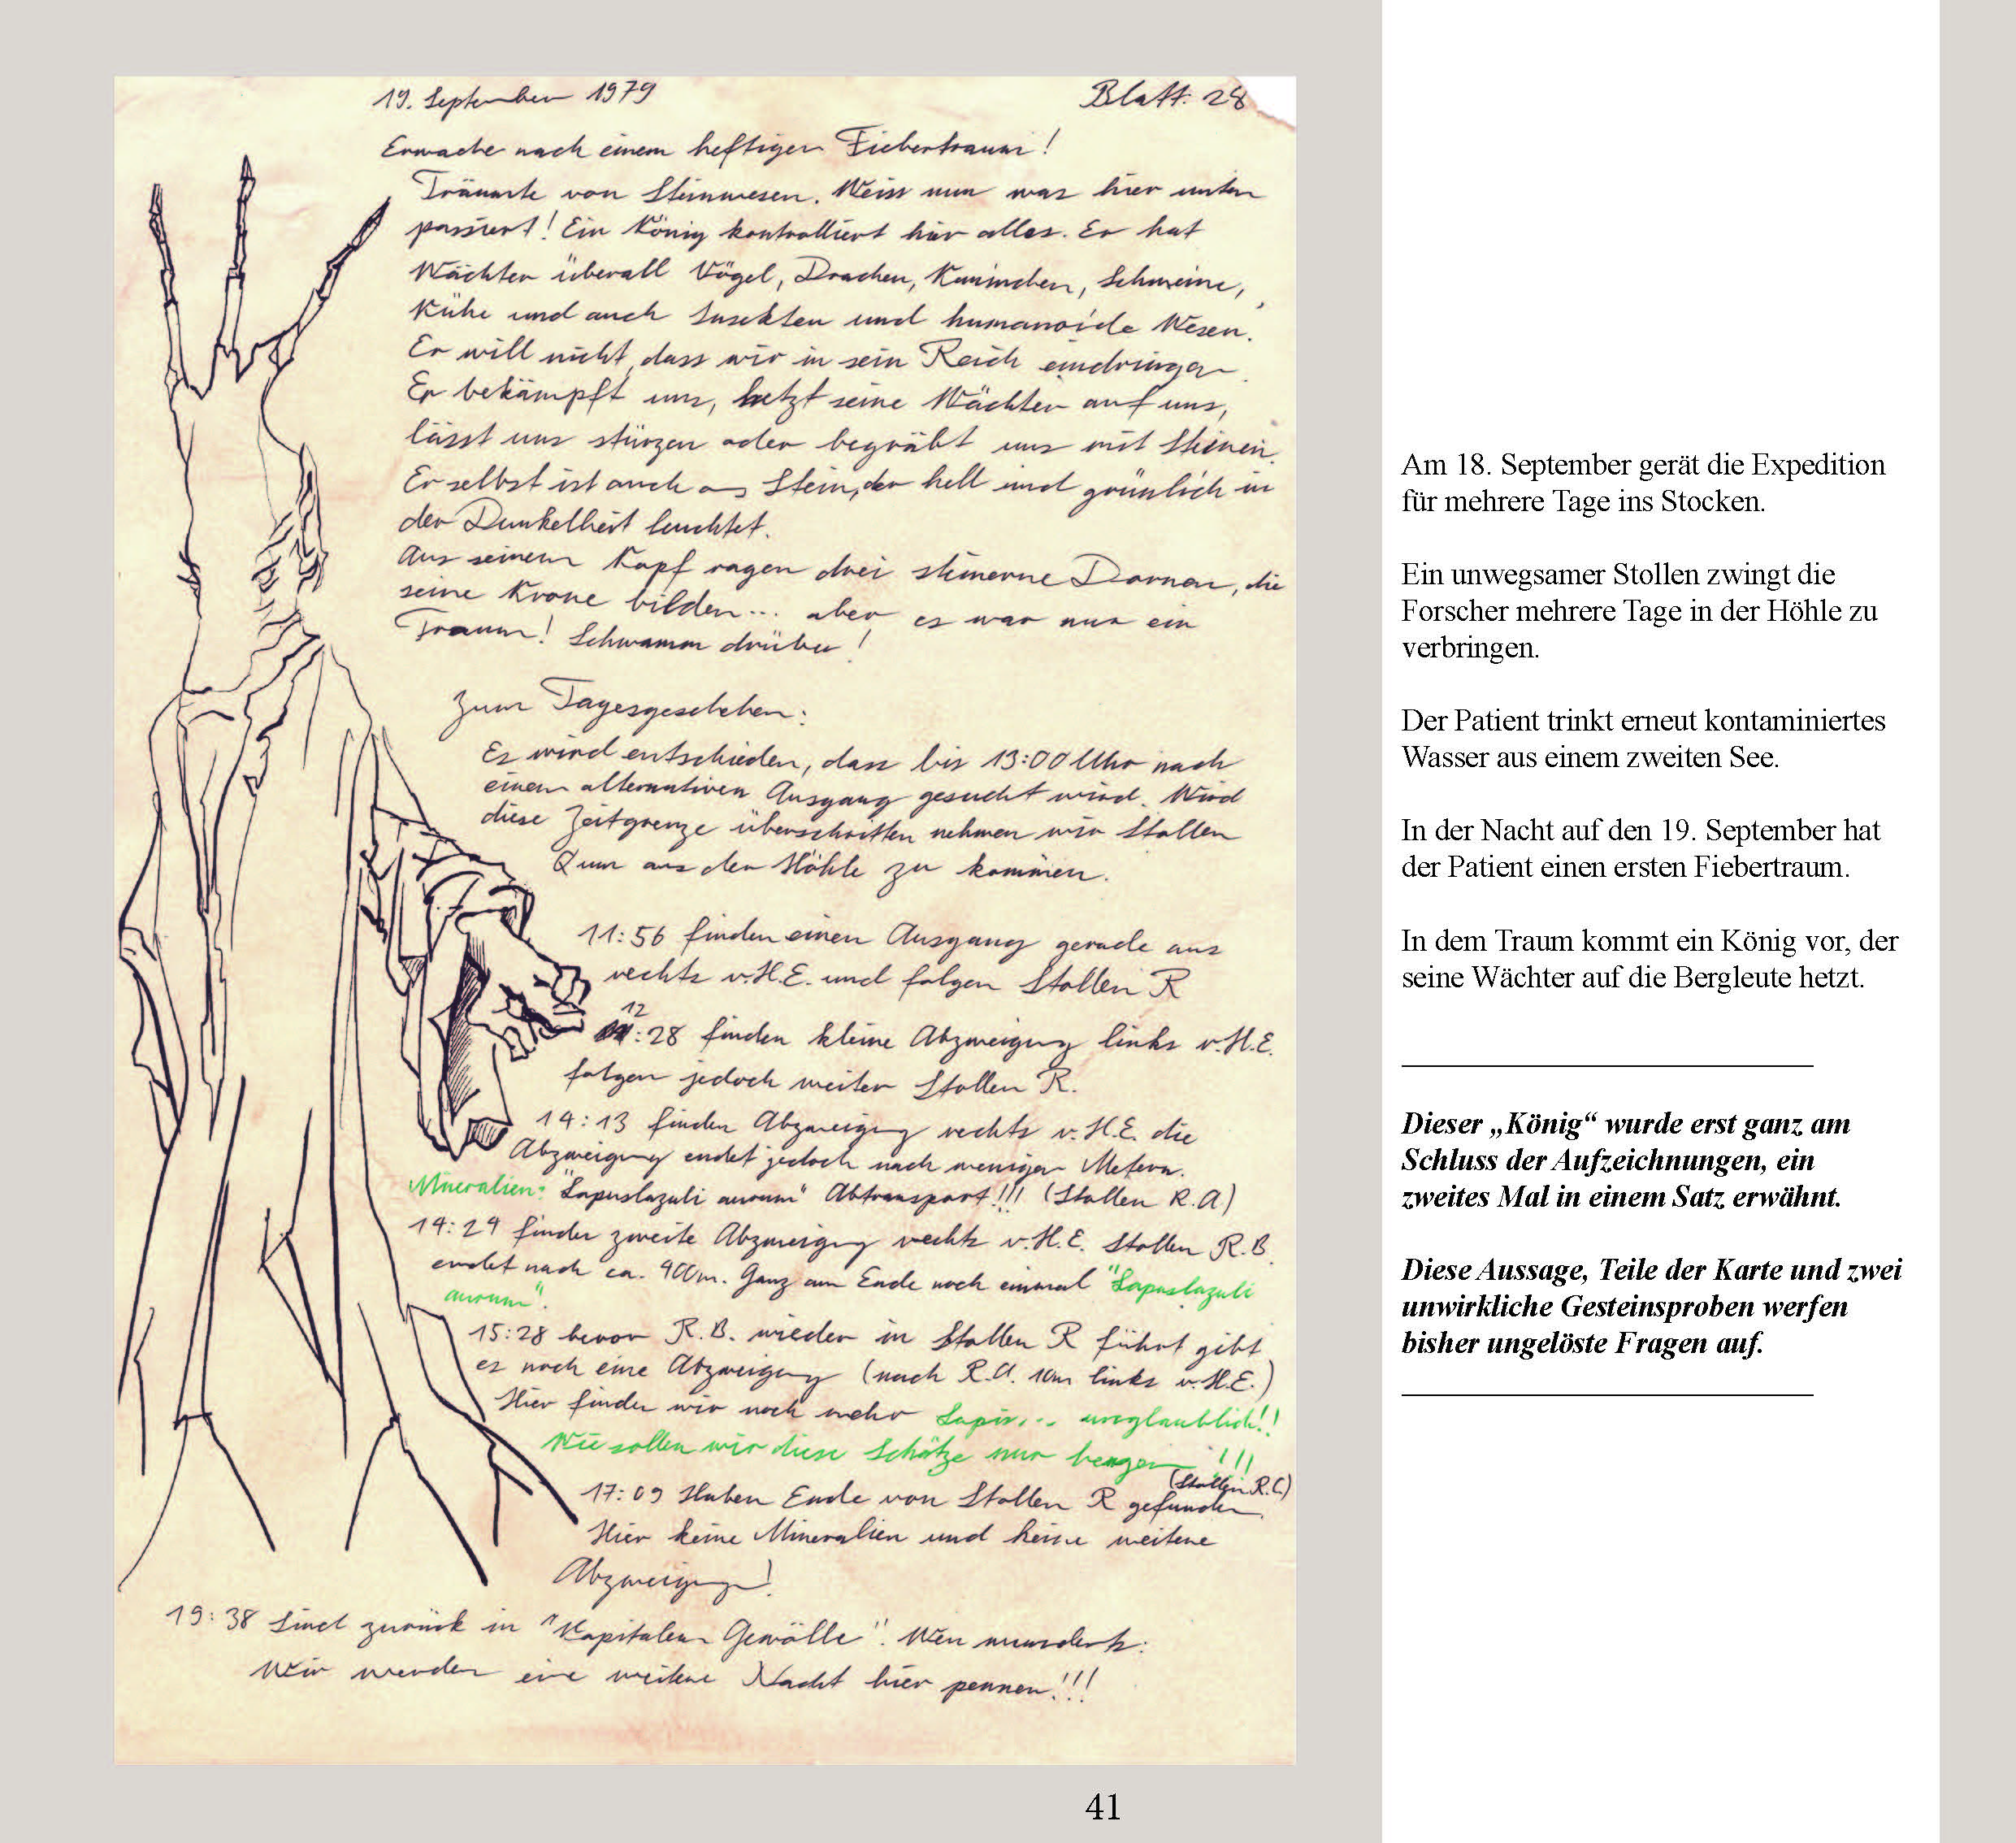 19. September 1979
Blatt: 28
Erwache nach einem heftigen Fiebertraum!
Träumte von Steinwesen. Weiss nun was hier unten
passiert! Ein König kontrolliert hier alles. Er hat
Wächter überall Vögel, Drachen, Kaninchen, Schweine,
Kühe und auch Insekten und humanoide Wesen.
Er will nicht, dass wir in sein Reich eindringen.
Er bekämpft uns, hetzt seine Wächter auf uns,
lässt uns stürzen oder begräbt uns mit Steinen.
Er selbst ist auch aus Stein, der hell und grünlich in
der Dunkelheit leuchtet.
Aus seinem Kopf ragen drei steinerne Dornen, die
seine Krone bilden... aber es war nur ein
Traum! Schwamm drüber!
Zum Tagesgeschehen:
Es wird entschieden, dass bis 13:00 Uhr nach
einem alternativen Ausgang gesucht wird. Wird
diese Zeitgrenze überschritten nehmen wir Stollen
Q um aus der Höhle zu kommen.
11:56 finden einen Ausgang gerade aus
rechts v.H.E. und folgen Stollen R
12:28 finden kleine Abzweigung links v.H.E.
folgen jedoch weiter Stollen R.
14:13 finden Abzweigung rechts v.H.E. die
Abzweigung endet jedoch nach wenigen Metern.
Mineralien: "Lapuslazuli aurum" Abtransport!!! (Stollen R.A)
14:29 finden zweite Abzweigung rechts v.H.E. Stollen R.B
endet nach ca. 400m. Ganz am Ende noch einmal "Lapuslazuli
aurum".
15:28 bevor R.B. wieder in Stollen R führt gibt
es noch eine Abzweigung (nach R.A. 10m links v.H.E.)
Hier finden wir noch mehr Lapis... unglaublich!!
Wie sollen wir diese Schätze nur bergen !!!
(Stollen R.C)
17:09 Haben Ende von Stollen R gefunden.
Hier keine Mineralien und keine weitere
Abzweigung!
19:38 Sind zurück in "Kapitalem Gewölbe". Wen wunderts:
Wir werden eine weitere Nacht hier pennen!!!
Am 18. September gerät die Expedition
für mehrere Tage ins Stocken.
Ein unwegsamer Stollen zwingt die
Forscher mehrere Tage in der Höhle zu
verbringen.
Der Patient trinkt erneut kontaminiertes
Wasser aus einem zweiten See.
In der Nacht auf den 19. September hat
der Patient einen ersten Fiebertraum.
In dem Traum kommt ein König vor, der
seine Wächter auf die Bergleute hetzt.
Dieser „König“ wurde erst ganz am
Schluss der Aufzeichnungen, ein
zweites Mal in einem Satz erwähnt.
Diese Aussage, Teile der Karte und zwei
unwirkliche Gesteinsproben werfen
bisher ungelöste Fragen auf.
41